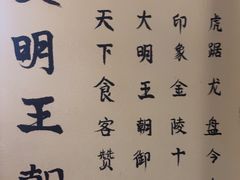 虎踞龙盘今
印象金陵十
大明王朝御
天下食客赞
明王朝